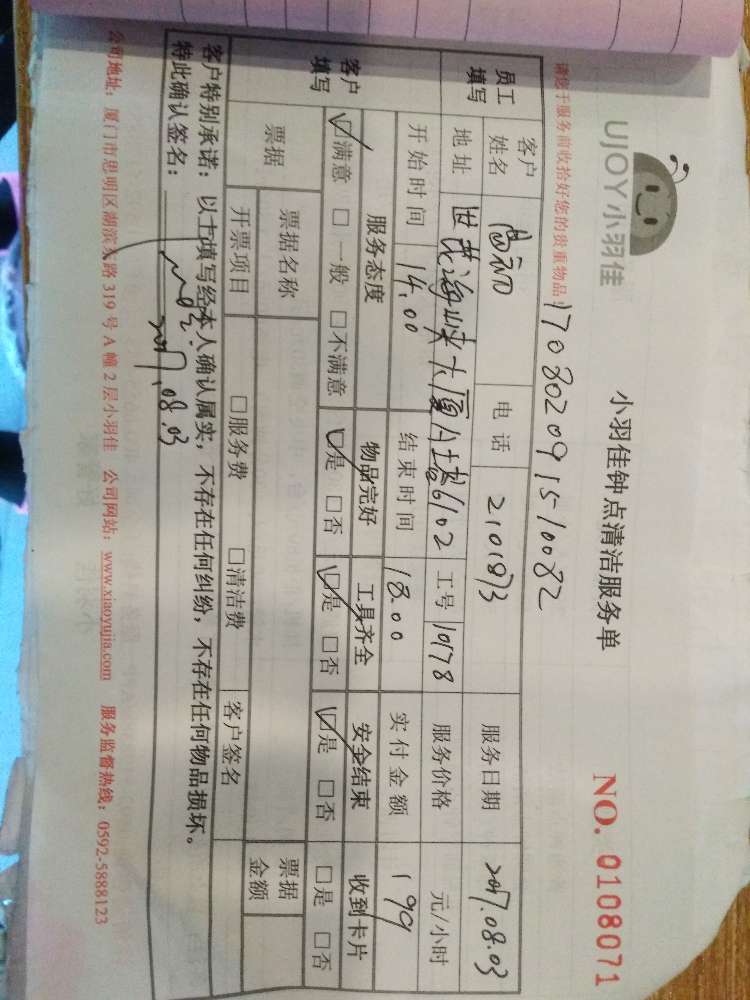 UJOY小羽佳
小羽佳钟点清洁服务单
NO. 0108071
请您于服务前收拾好您的贵重物品!
170802091510082
员工填写
客户姓名
电话 2101873
服务日期 2017.08.03
地址 世茂海峡大厦A塔6102
工号 10178
服务价格 元/小时
开始时间 14.00
结束时间 18.00
实付金额 199
客户填写
服务态度 物品完好 工具齐全 安全结束 收到卡片
☑满意 □一般 □不满意 ☑是 □否 ☑是 □否 ☑是 □否 □是 □否
票据 票据名称 票据金额
开票项目 □服务费 □清洁费 客户签名
客户特别承诺：以上填写经本人确认属实，不存在任何纠纷，不存在任何物品损坏。
特此确认签名：
2017.08.03
公司地址：厦门市思明区湖滨东路 319 号 A 幢 2 层小羽佳 公司网站：www.xiaoyujia.com 服务监督热线：0592-5888123